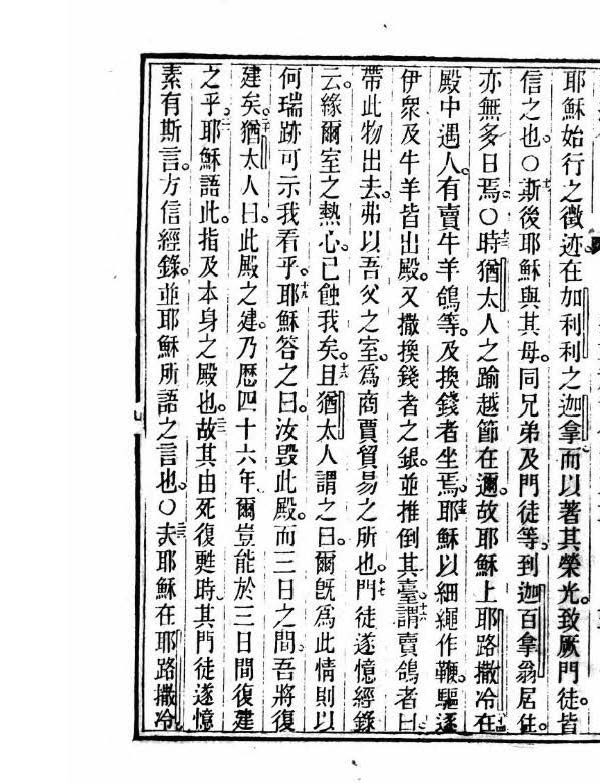 耶穌始行之徵迹在加利利之迦拿而以著其榮光。致厥門徒皆
信之也。○十二斯後耶穌與其母。同兄弟及門徒等。到迦百拿翁居住。
亦無多日焉。○十三時猶太人之踰越節在邇。故耶穌上耶路撒冷。十四在
殿中遇人。有賣牛羊鴿等。及換錢者坐焉。十五耶穌以細繩作鞭。驅逐
伊衆及牛羊皆出殿。又撒換錢者之銀。並推倒其臺。十六謂賣鴿者曰
帶此物出去。弗以吾父之室。為商賈貿易之所也。十七門徒遂憶經錄
云。緣爾室之熱心。已蝕我矣。十八且猶太人謂之曰。爾旣為此情則以
何瑞跡可示我看乎。十九耶穌答之曰。汝毀此殿。而三日之間。吾將復
建矣。二十猶太人曰。此殿之建。乃歷四十六年。爾豈能於三日間復建
之乎。二一耶穌語此。指及本身之殿也。二二故其由死復甦時。其門徒遂憶
素有斯言。方信經錄。並耶穌所語之言也。○二三夫耶穌在耶路撒冷